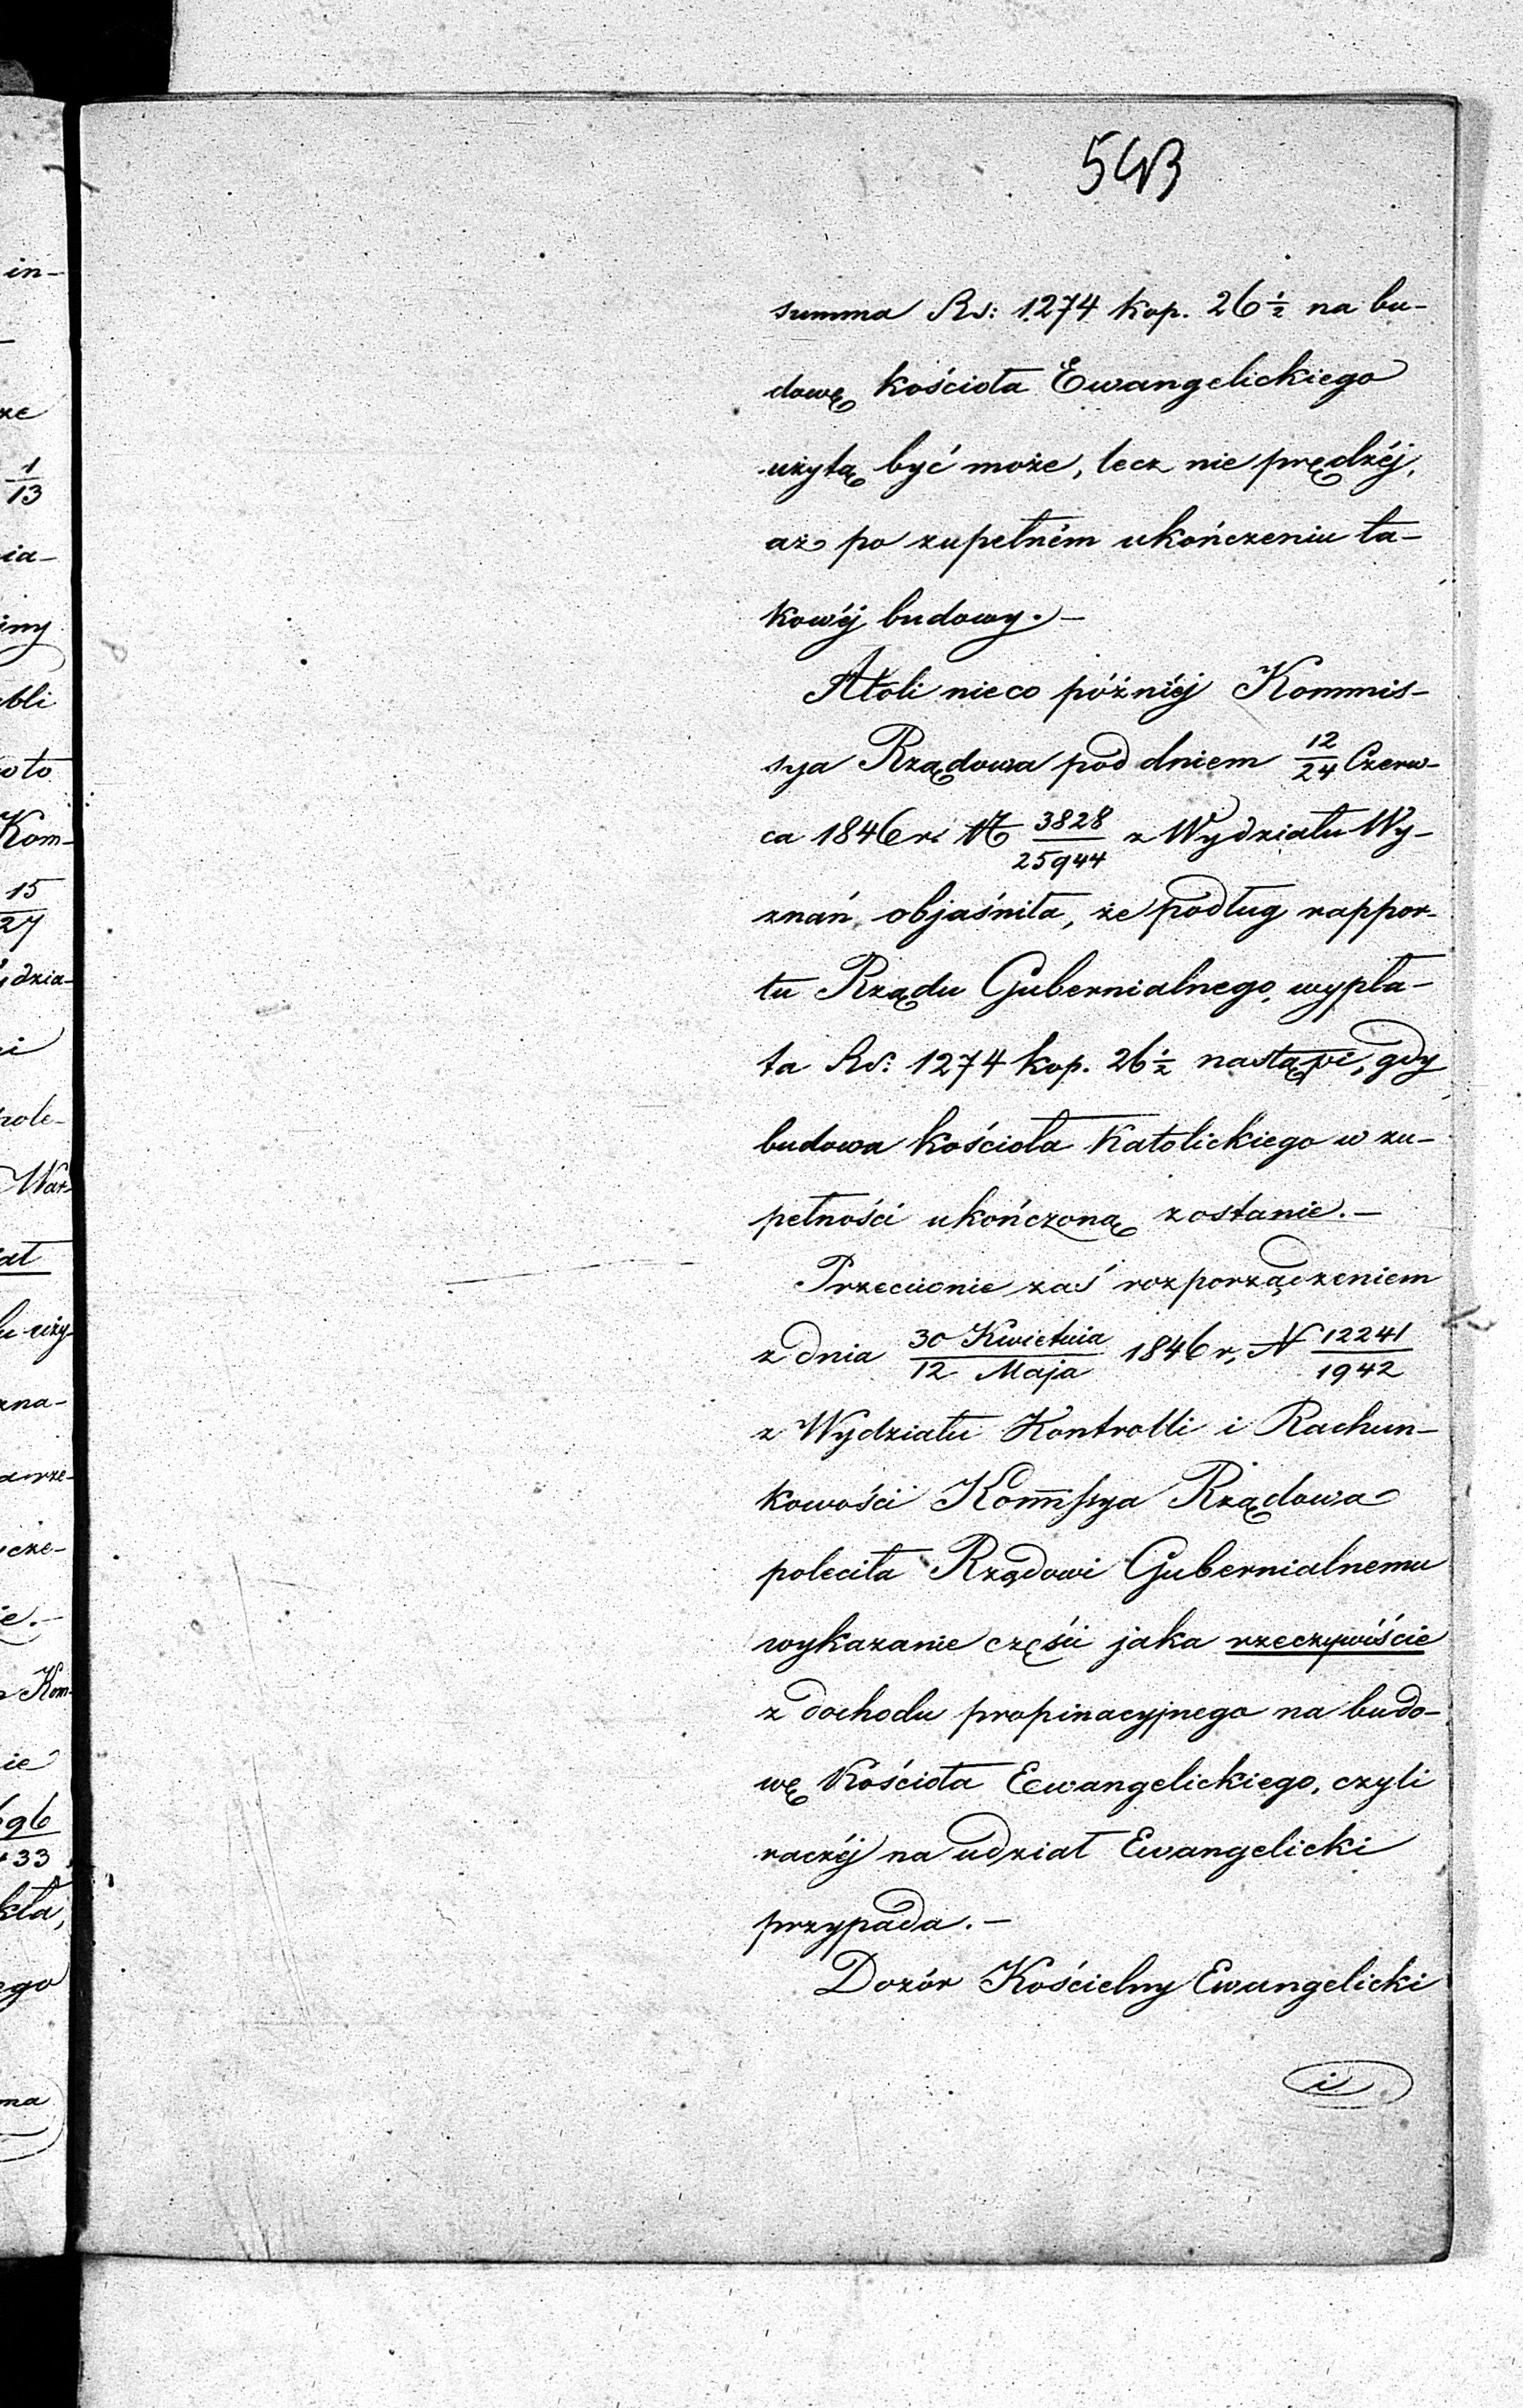 543
summa Rs: 1274 kop. 26 ½ na bu-
dowę kościoła Ewangelickiego
użytą być może, lecz nie prędzéj,
aż po zupełném ukończeniu ta-
kowéj budowy.—
Atoli nieco późniéj Kommis-
sya Rządowa pod dniem 12/24 Czerw-
ca 1846 r. № 3828/25944 z Wydziału Wy-
znań objaśniła, że podług rappor-
tu Rządu Gubernialnego, wypła-
ta Rs: 1274 kop. 26 ½ nastąpi, gdy
budowa kościoła Katolickiego w zu-
pełności ukończoną zostanie.—
Przeciwnie zaś rozporządzeniem
z dnia 30 Kwietnia/12 Maja 1846 r, N 12241/1942
z Wydziału Kontrolli i Rachun-
kowości Kommissya Rządowa
poleciła Rządowi Gubernialnemu
wykazanie części jaka rzeczywiście
z dochodu propinacyjnego na budo-
wę Kościoła Ewangelickiego, czyli
raczéj na udział Ewangelicki
przypada.—
Dozór Kościelny Ewangelicki
i
in-
że
1/13
ia-
iny
bli
oto
Kom-
15/27
ydzia-
i
pole-
War-
ał
lu uży-
zna-
icze-
ie.—
Kom-
ie
696/433
kła,
ego
ma